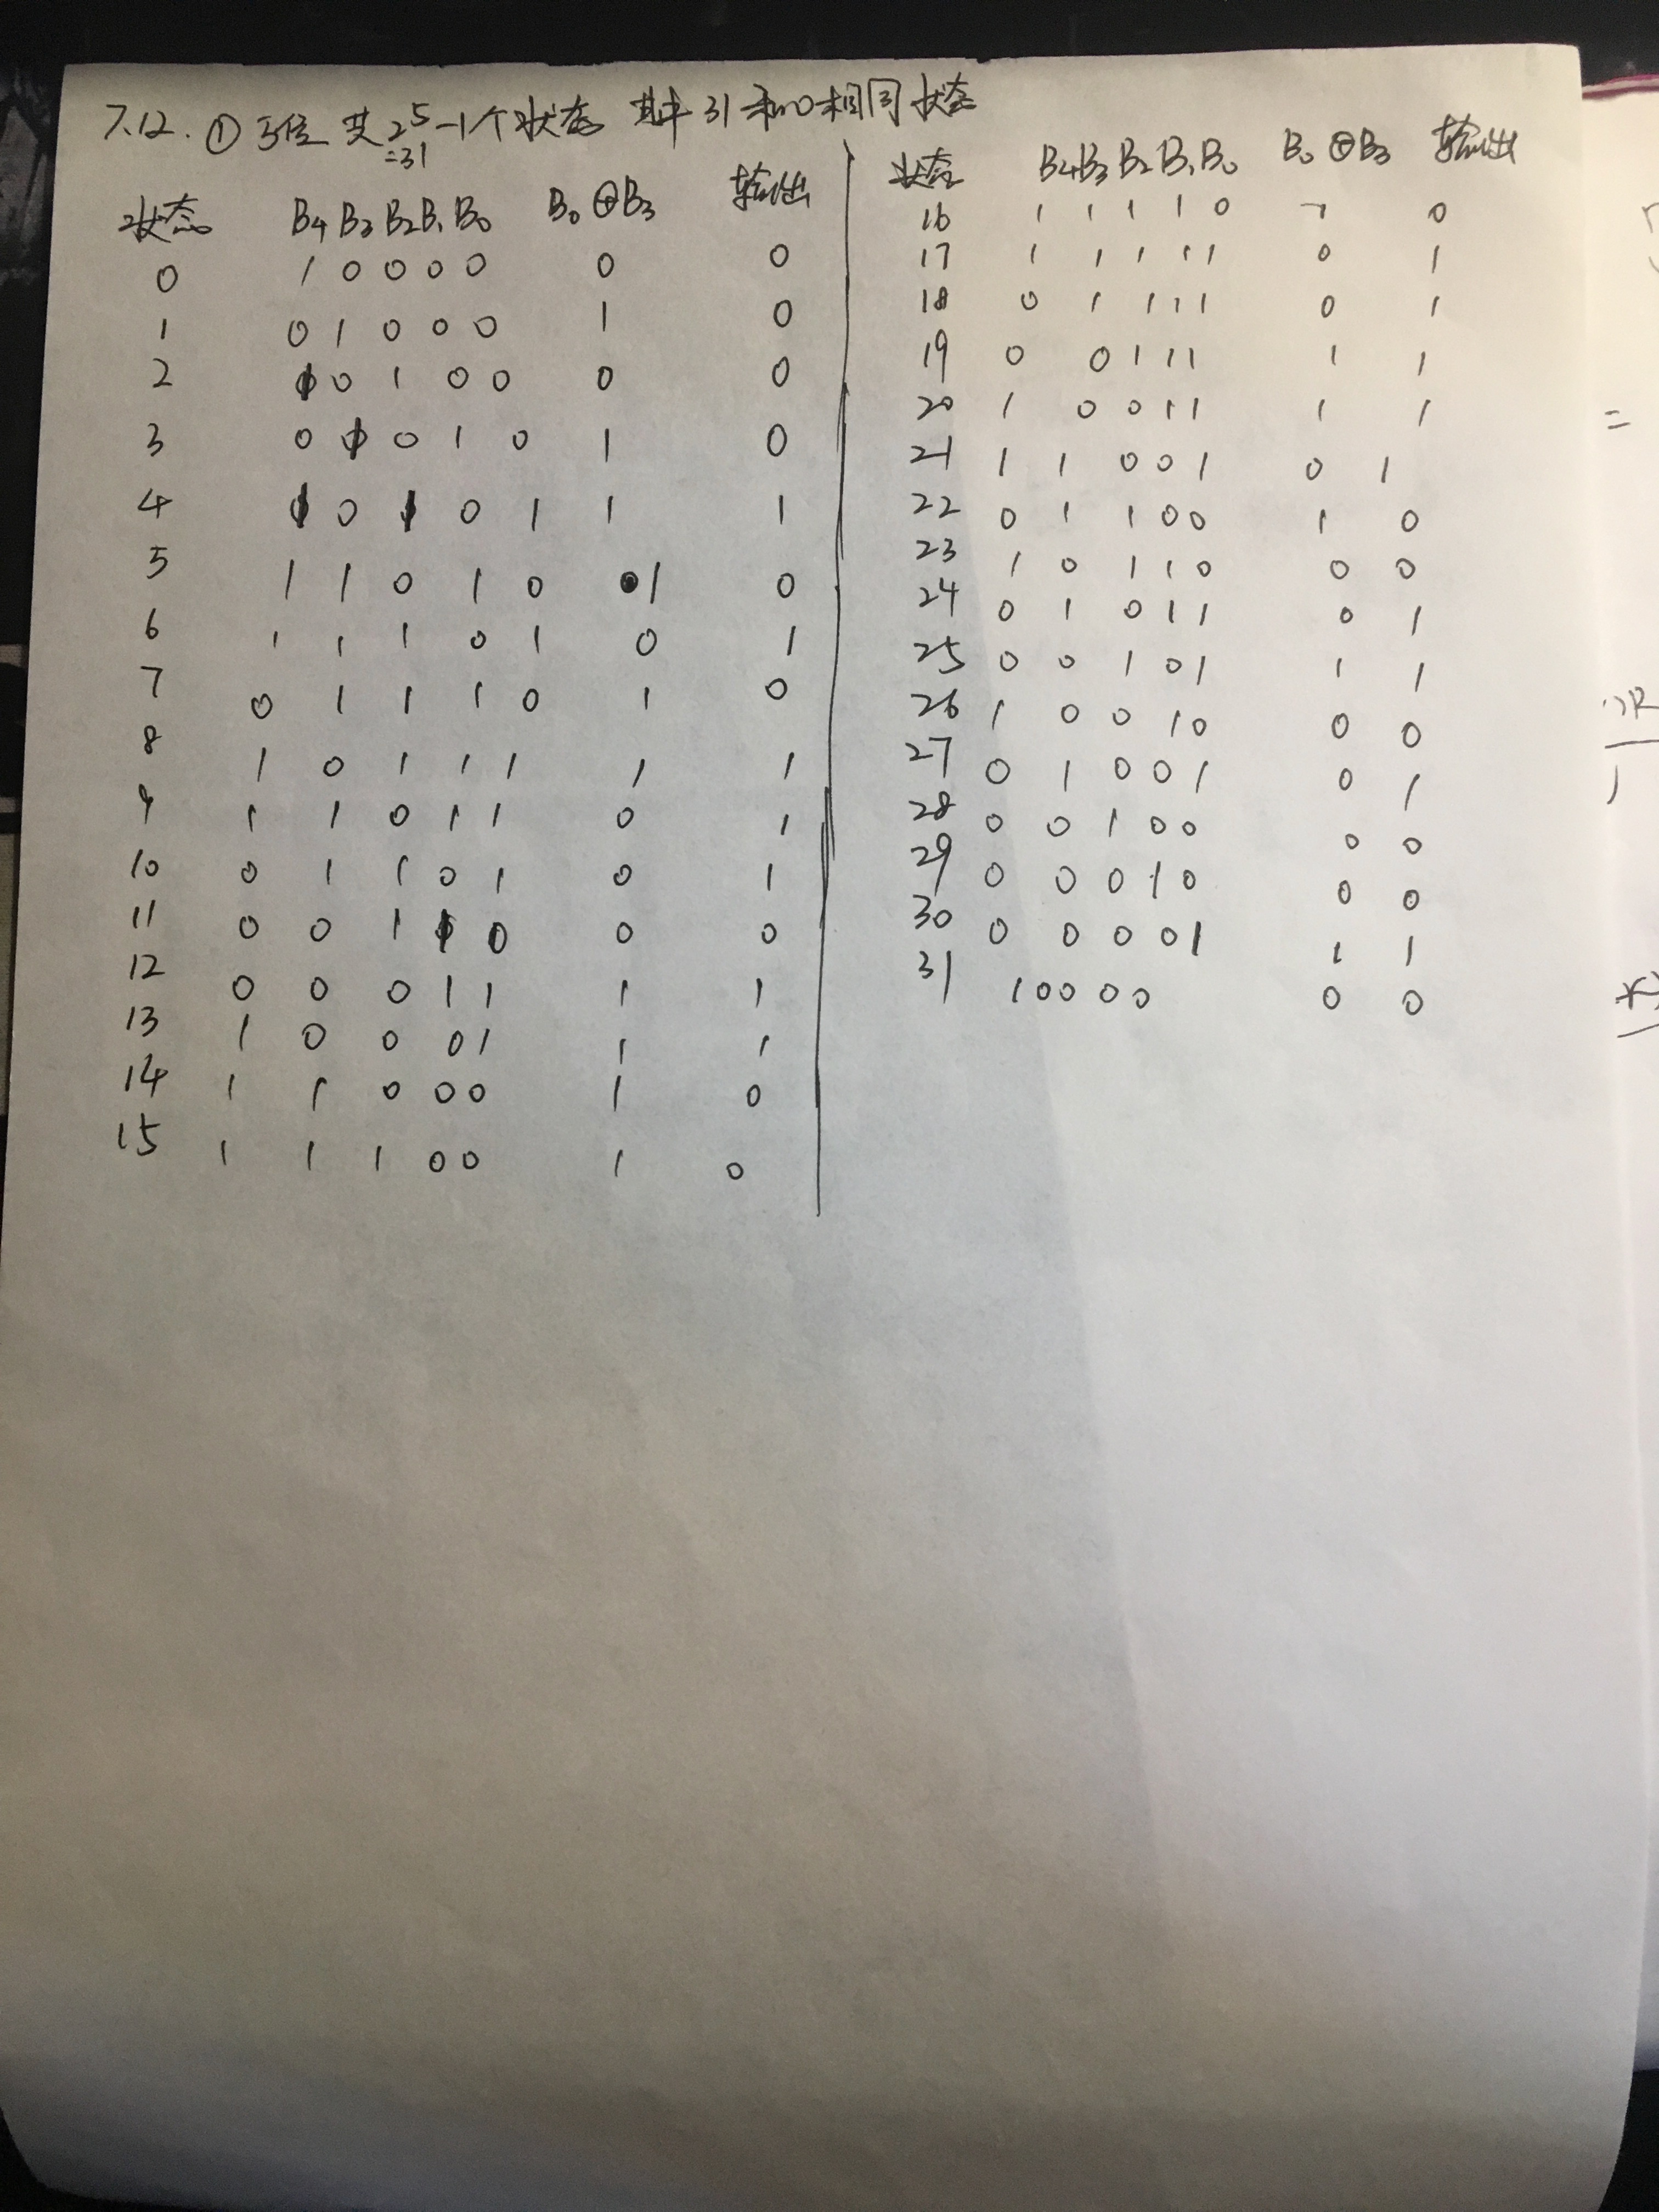 7.12. ① 5位 共2⁵-1个状态 其中31和0相同状态
=31
状态 B₄ B₃ B₂ B₁ B₀ B₀⊕B₃ 输出
0 1 0 0 0 0 0 0
1 0 1 0 0 0 1 0
2 1 0 1 0 0 0 0
3 0 1 0 1 0 1 0
4 1 0 1 0 1 1 1
5 1 1 0 1 0 1 0
6 1 1 1 0 1 0 1
7 0 1 1 1 0 1 0
8 1 0 1 1 1 1 1
9 1 1 0 1 1 0 1
10 0 1 1 0 1 0 1
11 0 0 1 1 0 0 0
12 0 0 0 1 1 1 1
13 1 0 0 0 1 1 1
14 1 1 0 0 0 1 0
15 1 1 1 0 0 1 0
状态 B₄ B₃ B₂ B₁ B₀ B₀⊕B₃ 输出
16 1 1 1 1 0 1 0
17 1 1 1 1 1 0 1
18 0 1 1 1 1 0 1
19 0 0 1 1 1 1 1
20 1 0 0 1 1 1 1
21 1 1 0 0 1 0 1
22 0 1 1 0 0 1 0
23 1 0 1 1 0 0 0
24 0 1 0 1 1 0 1
25 0 0 1 0 1 1 1
26 1 0 0 1 0 0 0
27 0 1 0 0 1 0 1
28 0 0 1 0 0 0 0
29 0 0 0 1 0 0 0
30 0 0 0 0 1 1 1
31 1 0 0 0 0 0 0
=